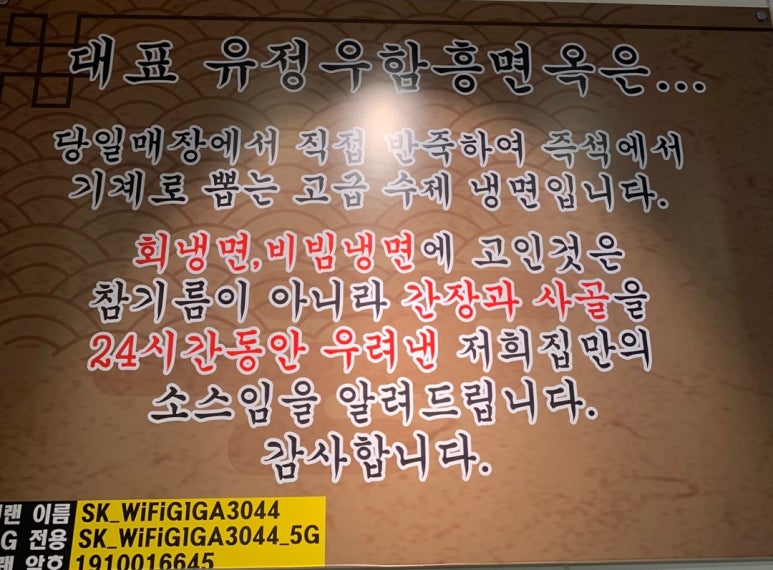 대표 유정우함흥면옥은...
당일매장에서 직접 반죽하여 즉석에서
기계로 뽑는 고급 수제 냉면입니다.
회냉면,비빔냉면에 고인것은
참기름이 아니라 간장과 사골을
24시간동안 우려낸 저희집만의
소스임을 알려드립니다.
감사합니다.
이름 SK_WiFiGIGA3044
G 전용 SK_WiFiGIGA3044_5G
암호 1910016645